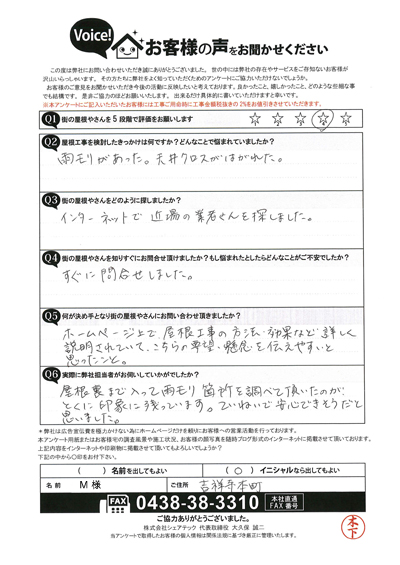 Voice!
お客様の声をお聞かせください
この度は弊社にお問い合わせいただき誠にありがとうございました。世の中には弊社の存在やサービスをご存知ないお客様が
沢山いらっしゃいます。その方たちに弊社をよく知っていただくためのアンケートにご協力いただけないでしょうか。
お客様のご意見をお聞かせいただき今後の活動に反映したいと考えております。良かったこと、嬉しかったこと、どのような些細な事
でも結構です。是非ご協力のほどお願いいたします。出来るだけ具体的に書いていただけますと幸いです。
※本アンケートにご記入いただいたお客様には工事ご用命時に工事金額税抜きの2%をお値引きさせていただきます。
Q1 街の屋根やさんを5段階で評価をお願いします ☆ ☆ ☆ ☆ ☆
Q2 屋根工事を検討したきっかけは何ですか？どんなことで悩まれていましたか？
雨モリがあった。天井クロスがはがれた。
Q3 街の屋根やさんをどのように探しましたか？
インターネットで近場の業者さんを探しました。
Q4 街の屋根やさんを知りすぐにお問合せ頂けましたか？もし悩まれたとしたらどんなことがご不安でしたか？
すぐに問合せしました。
Q5 何が決め手となり街の屋根やさんにお問い合わせ頂きましたか？
ホームページ上で、屋根工事の方法・効果など詳しく
説明されていて、こちらの要望・懸念を伝えやすいと
思ったこと。
Q6 実際に弊社担当者がお伺いしていかがでしたか？
屋根裏まで入って雨モリ箇所を調べて頂いたのが
とくに印象に残っています。ていねいで安心できそうだと
思いました。
＊弊社は広告宣伝費を極力かけない為にホームページだけを頼りにお客様への営業活動を行っております。
本アンケート用紙またはお客様宅の調査風景や施工状況、お客様の顔写真を随時ブログ形式のインターネットに掲載させて頂いております。
上記内容をインターネットや印刷物に掲載させて頂いてもよろしいでしょうか？
下記の中から〇印をお付け下さい。
（　）名前を出してもよい （〇）イニシャルなら出してもよい
名前 M様 ご住所 吉祥寺本町
FAX 0438-38-3310 本社直通 FAX番号
ご協力ありがとうございました。
株式会社シェアテック 代表取締役 大久保 誠二
当アンケートで取得したお客様の個人情報は関係法規に基づき厳正に管理いたします。
木下